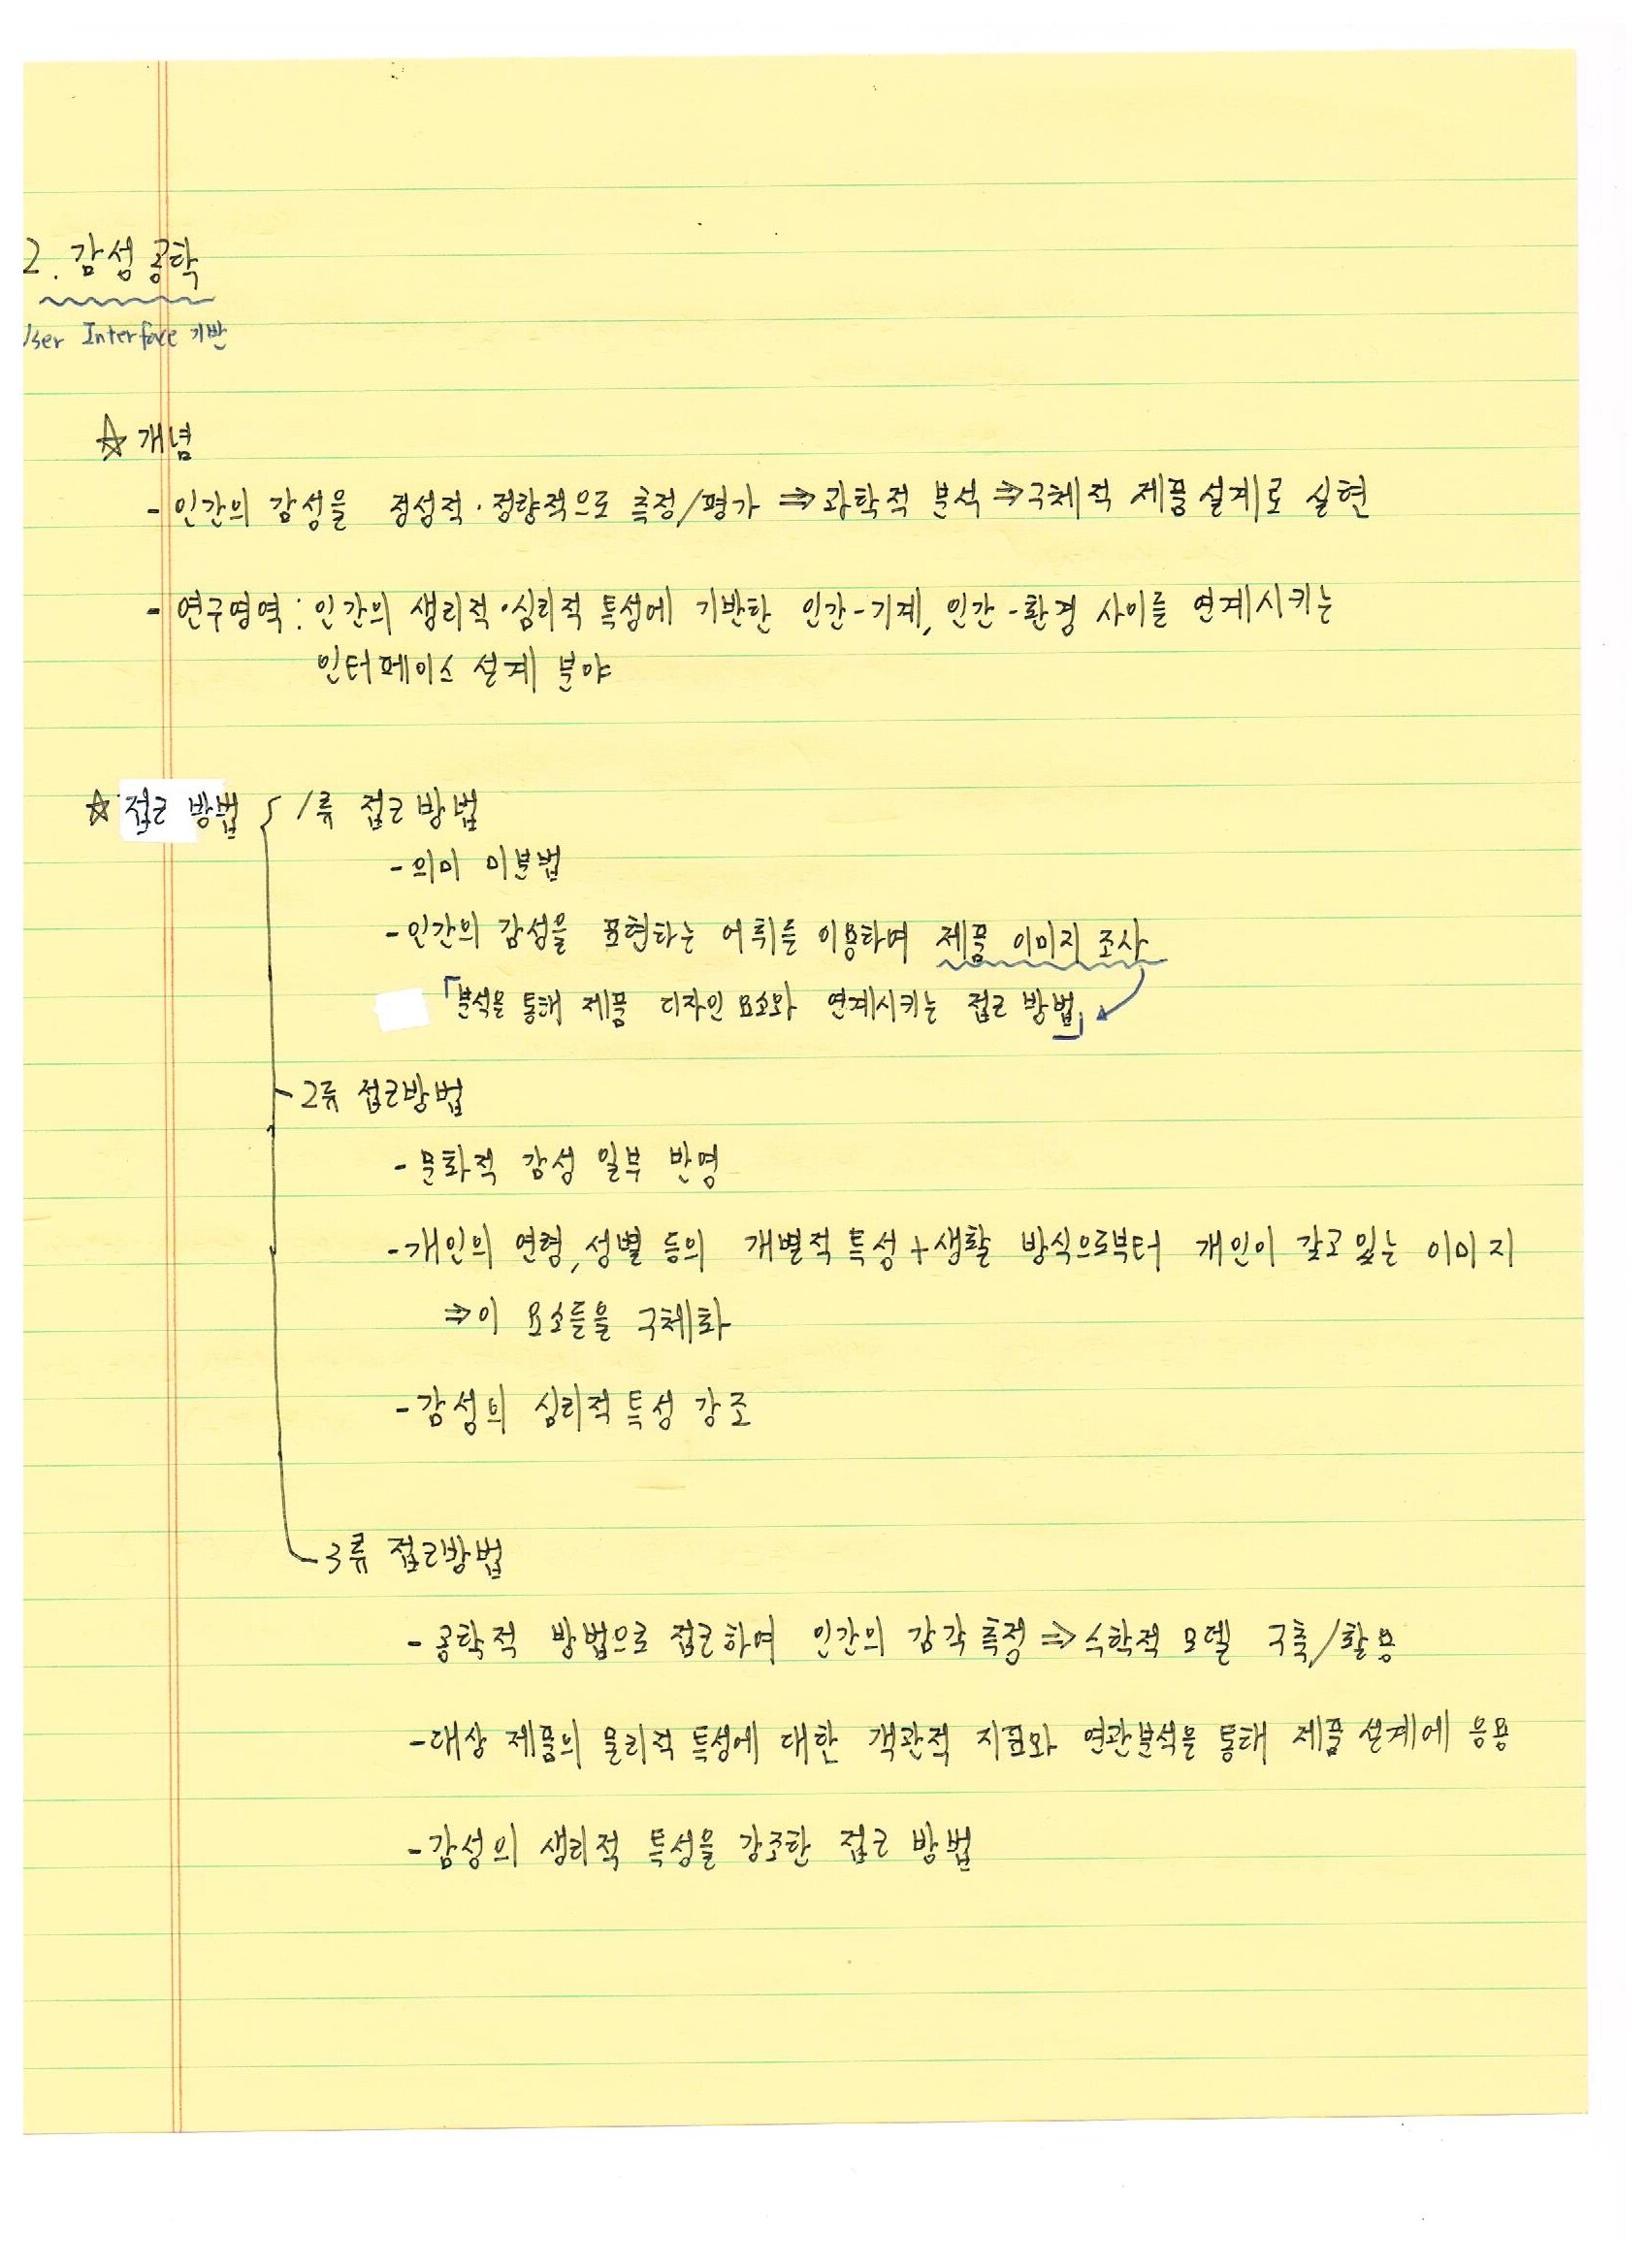 2. 감성공학
User Interface 기반
☆ 개념
- 인간의 감성을 정성적·정량적으로 측정/평가 ⇒ 과학적 분석 ⇒ 구체적 제품설계로 실현
- 연구영역 : 인간의 생리적·심리적 특성에 기반한 인간-기계, 인간-환경 사이를 연계시키는
인터페이스 설계 분야
☆ 접근 방법 { 1류 접근방법
- 의미 미분법
- 인간의 감성을 표현하는 어휘를 이용하여 제품 이미지 조사
「분석을 통해 제품 디자인 요소와 연계시키는 접근 방법」
2류 접근방법
- 문화적 감성 일부 반영
- 개인의 연령, 성별 등의 개별적 특성 + 생활 방식으로부터 개인이 갖고 있는 이미지
⇒ 이 요소들을 구체화
- 감성의 심리적 특성 강조
3류 접근방법
- 공학적 방법으로 접근하여 인간의 감각 측정 ⇒ 수학적 모델 구축/활용
- 대상 제품의 물리적 특성에 대한 객관적 지표와 연관분석을 통해 제품 설계에 응용
- 감성의 생리적 특성을 강조한 접근 방법